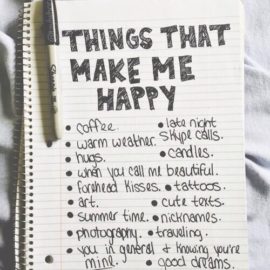 THINGS THAT
MAKE ME
HAPPY
• coffee.
• warm weather.
• hugs.
• when you call me beautiful.
• forehead kisses.
• art.
• summer time.
• photography.
• you in general & knowing you're
mine.
• late night
skype calls.
• candles.
• tattoos.
• cute texts.
• nicknames.
• traveling.
• good dreams.